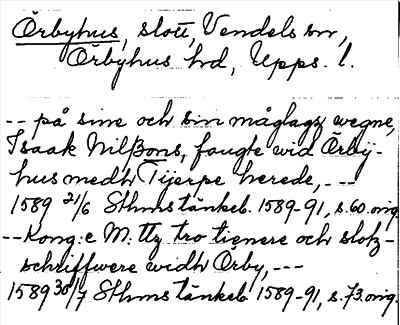 Örbyhus, slott, Vendels sn,
Örbyhus hd, Upps. l.
-- på sine och sin måglagz wegne,
Isaak Nilßons, faugte wid Örbÿ-
hus medh Tijerpe herede, ---
1589 21/6 Sthms tänkeb. 1589-91, s. 60. orig.
-- Kong:e M:ttz tro tienere och slotz-
schriffwere widh Örby, ---
1589 30/7 Sthms tänkeb. 1589-91, s. 73. orig.